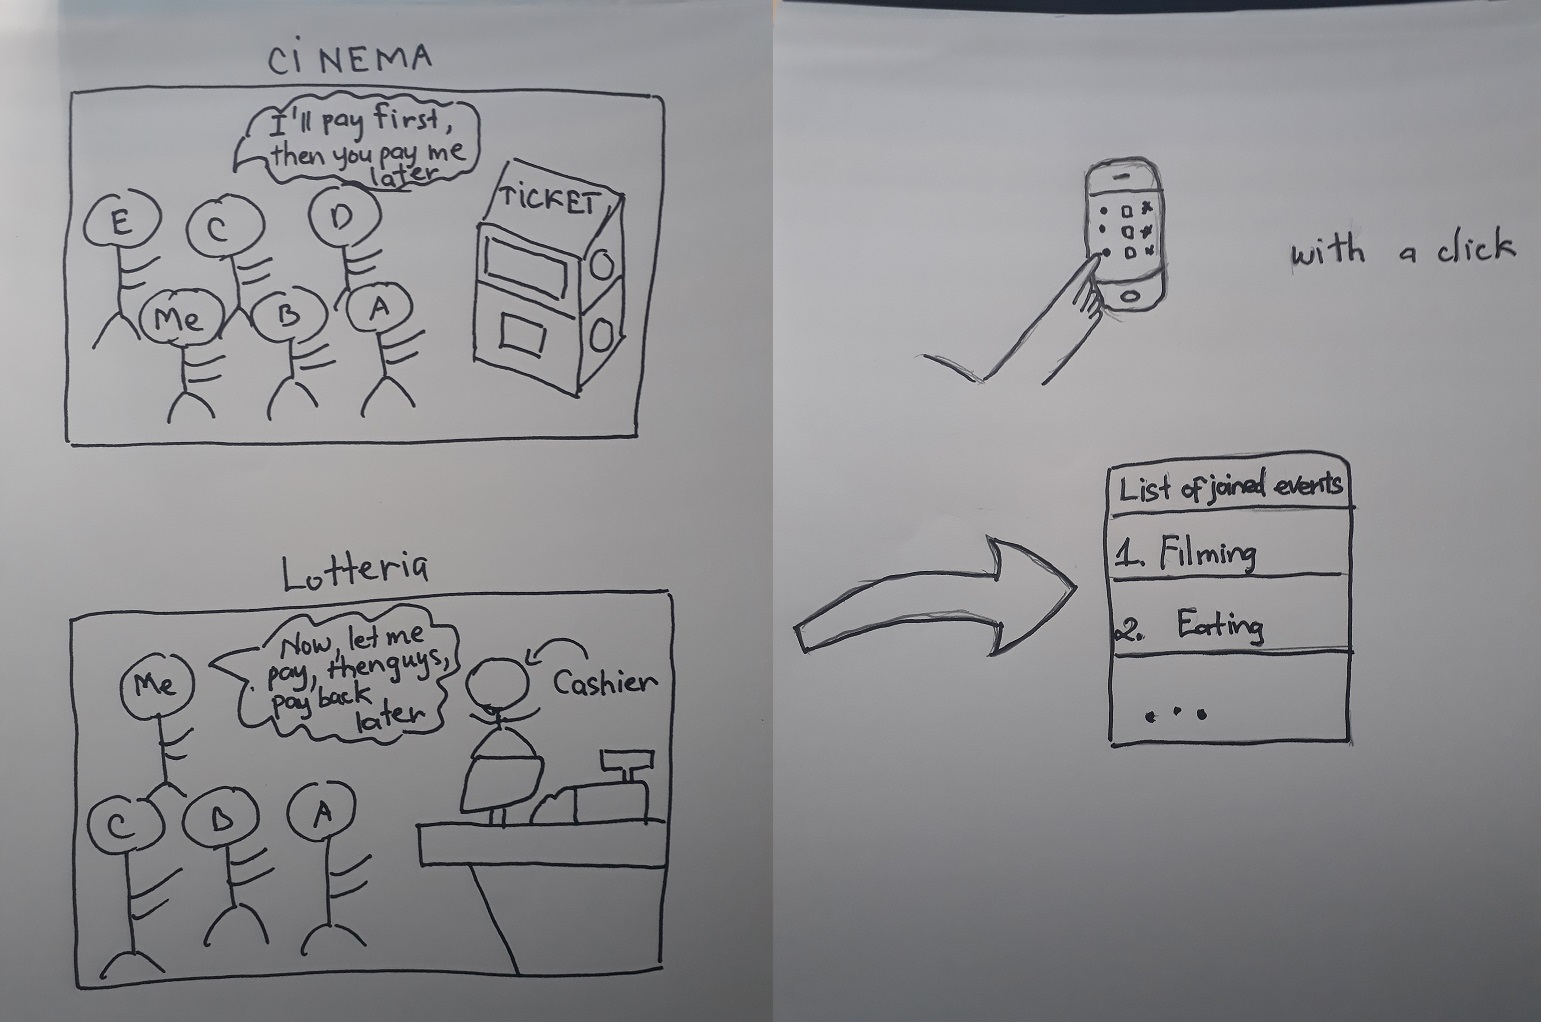 CiNEMA
I'll pay first,
then you pay me
later
TiCKET
E
C
D
Me
B
A
Lotteria
Now, let me
pay, then guys,
pay back
later
Me
Cashier
C
B
A
with a click
List of joined events
1. Filming
2. Eating
...